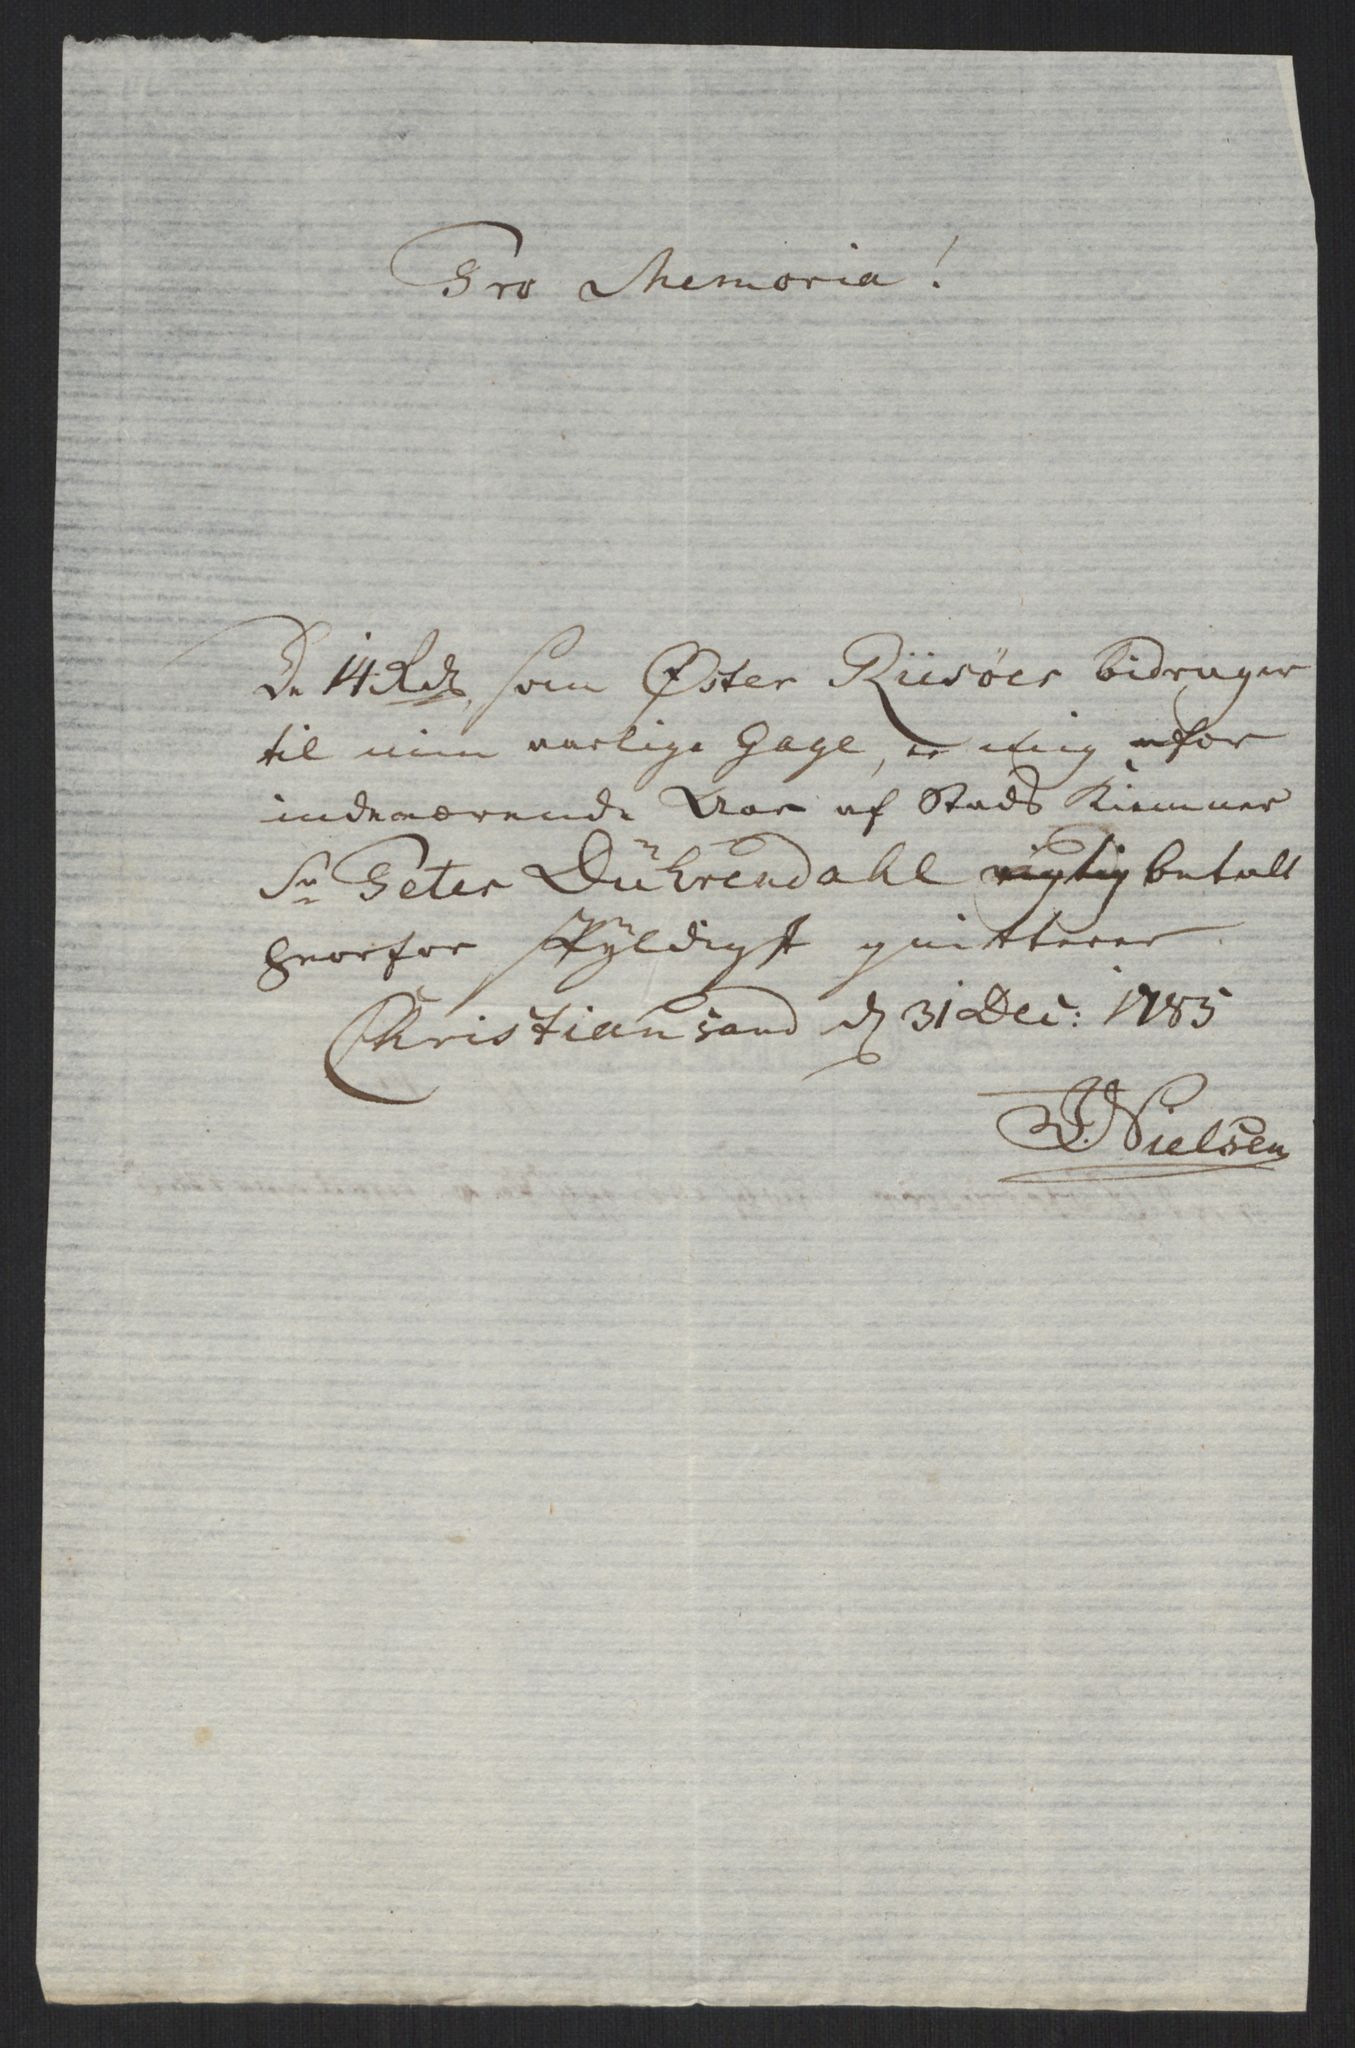 Pro Memoria!
De 14 Rdr, som Øster Riisöer bidrager
til min aarlige Gage, er mig for
indeværende Aar af Stads Kiemner
Sr Peter Dührendahl rigtig betalt
hvorfor skyldigst quitterer
Christiansand d 31 Dec: 1785
Nielsen